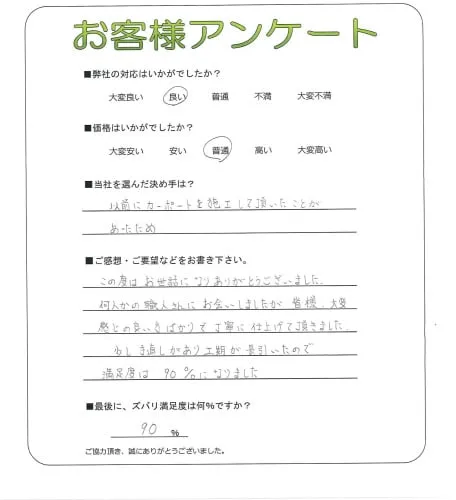 お客様アンケート
■弊社の対応はいかがでしたか？
大変良い 良い 普通 不満 大変不満
■価格はいかがでしたか？
大変安い 安い 普通 高い 大変高い
■当社を選んだ決め手は？
以前にカーポートを施工して頂いたことが
あったため
■ご感想・ご要望などをお書き下さい。
この度はお世話になりありがとうございました。
何人かの職人さんにお会いしましたが皆様、大変
感じの良い方ばかりで丁寧に仕上げて頂きました。
少し手直しがあり工期が長引いたので
満足度は90%になりました
■最後に、ズバリ満足度は何%ですか？
90 %
ご協力頂き、誠にありがとうございました。